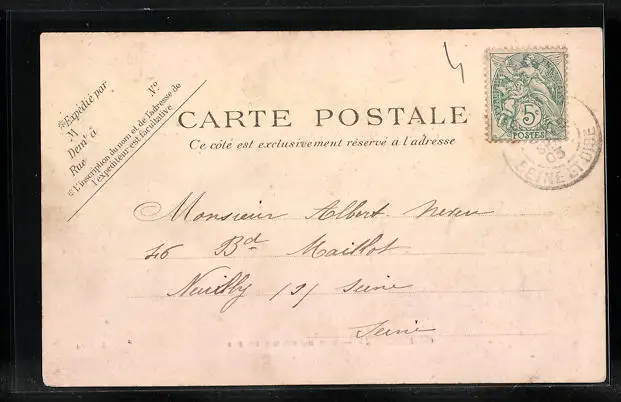 Expédié par
M
Demt à
Rue
Nº
L'inscription du nom et de l'adresse de
l'expéditeur est facultative
CARTE POSTALE
Ce côté est exclusivement réservé à l'adresse
5c
POSTES
03
SEINE-ET-OISE
Monsieur Albert
46 Bd Maillot
Neuilly s/ Seine
Seine